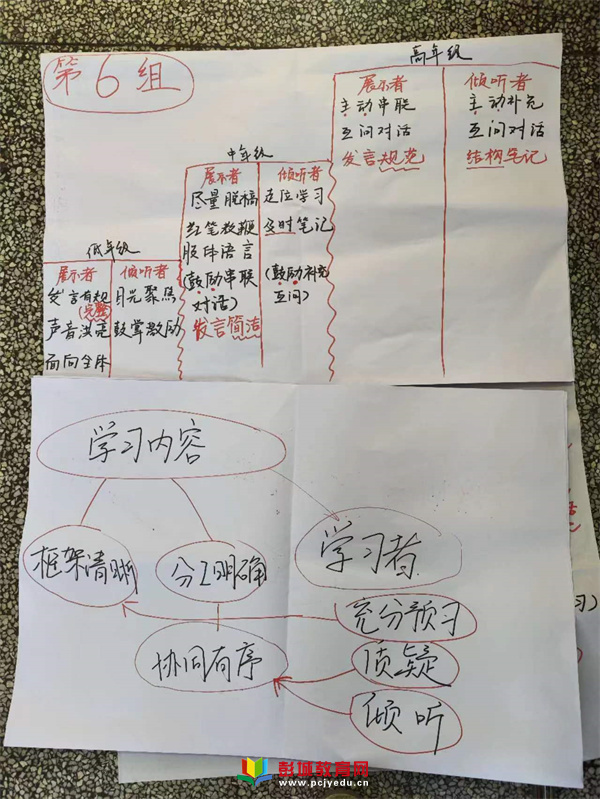 第6组
高年级
展示者
主动串联
互问对话
发言规范
倾听者
主动补充
互问对话
结构笔记
中年级
展示者
尽量脱稿
红笔教鞭
肢体语言
(鼓励串联
对话)
发言简洁
倾听者
走位学习
及时笔记
(鼓励补充
互问)
低年级
展示者
发言有规
(完整)
声音洪亮
面向全体
倾听者
目光聚焦
鼓掌激励
学习内容
框架清晰
分工明确
学习者
充分预习
协同有序
质疑
倾听
习)
彭城教育网
www.pcjyedu.cn